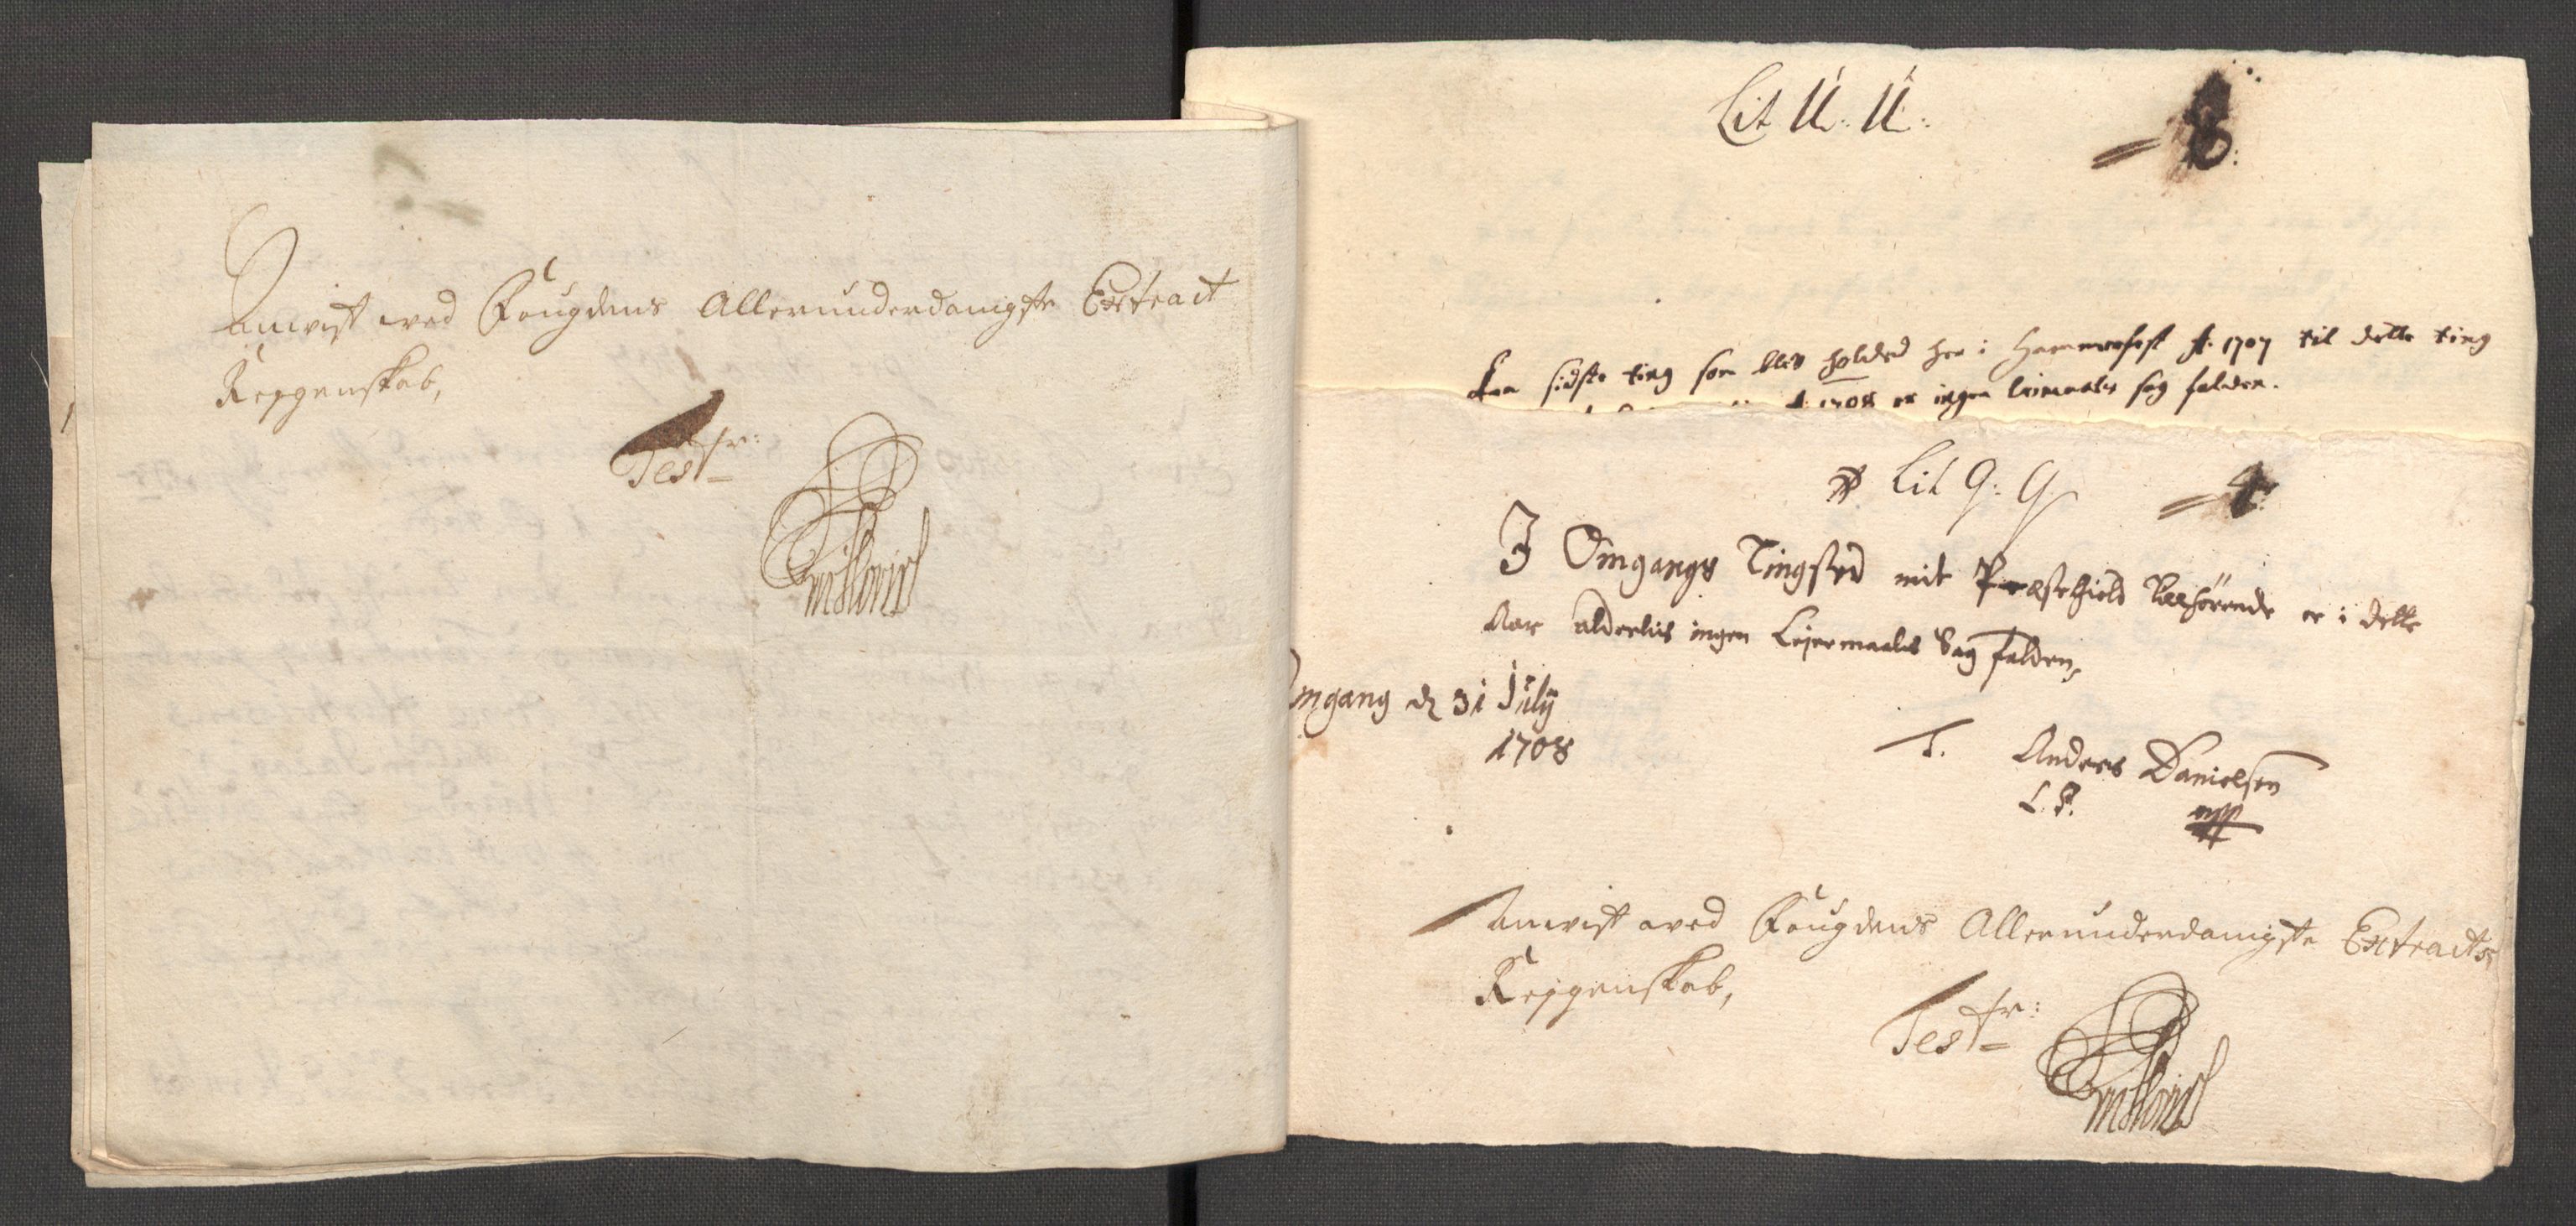 Anvist ved Fougdens Allerunderdanigste Extract
Reggenskab,
Testr:
Lit U: U:
8:
Fra sidste ting som blef holded her i Hammerfest Ao: 1707 til dette ting
Ao: 1708 er ingen leiermaals sag falden.
Lit Q: Q
4:
I Omgangs Tingsted med Præstegield tilhørende er i dette
Aar alderlis ingen Lejermaals Sag falden,
Omgang d 31 July
1708
T. Anders Danielsen
L. S. mpp
Anvist ved Fougdens Allerunderdanigste Extracts
Reggenskab,
Testr: